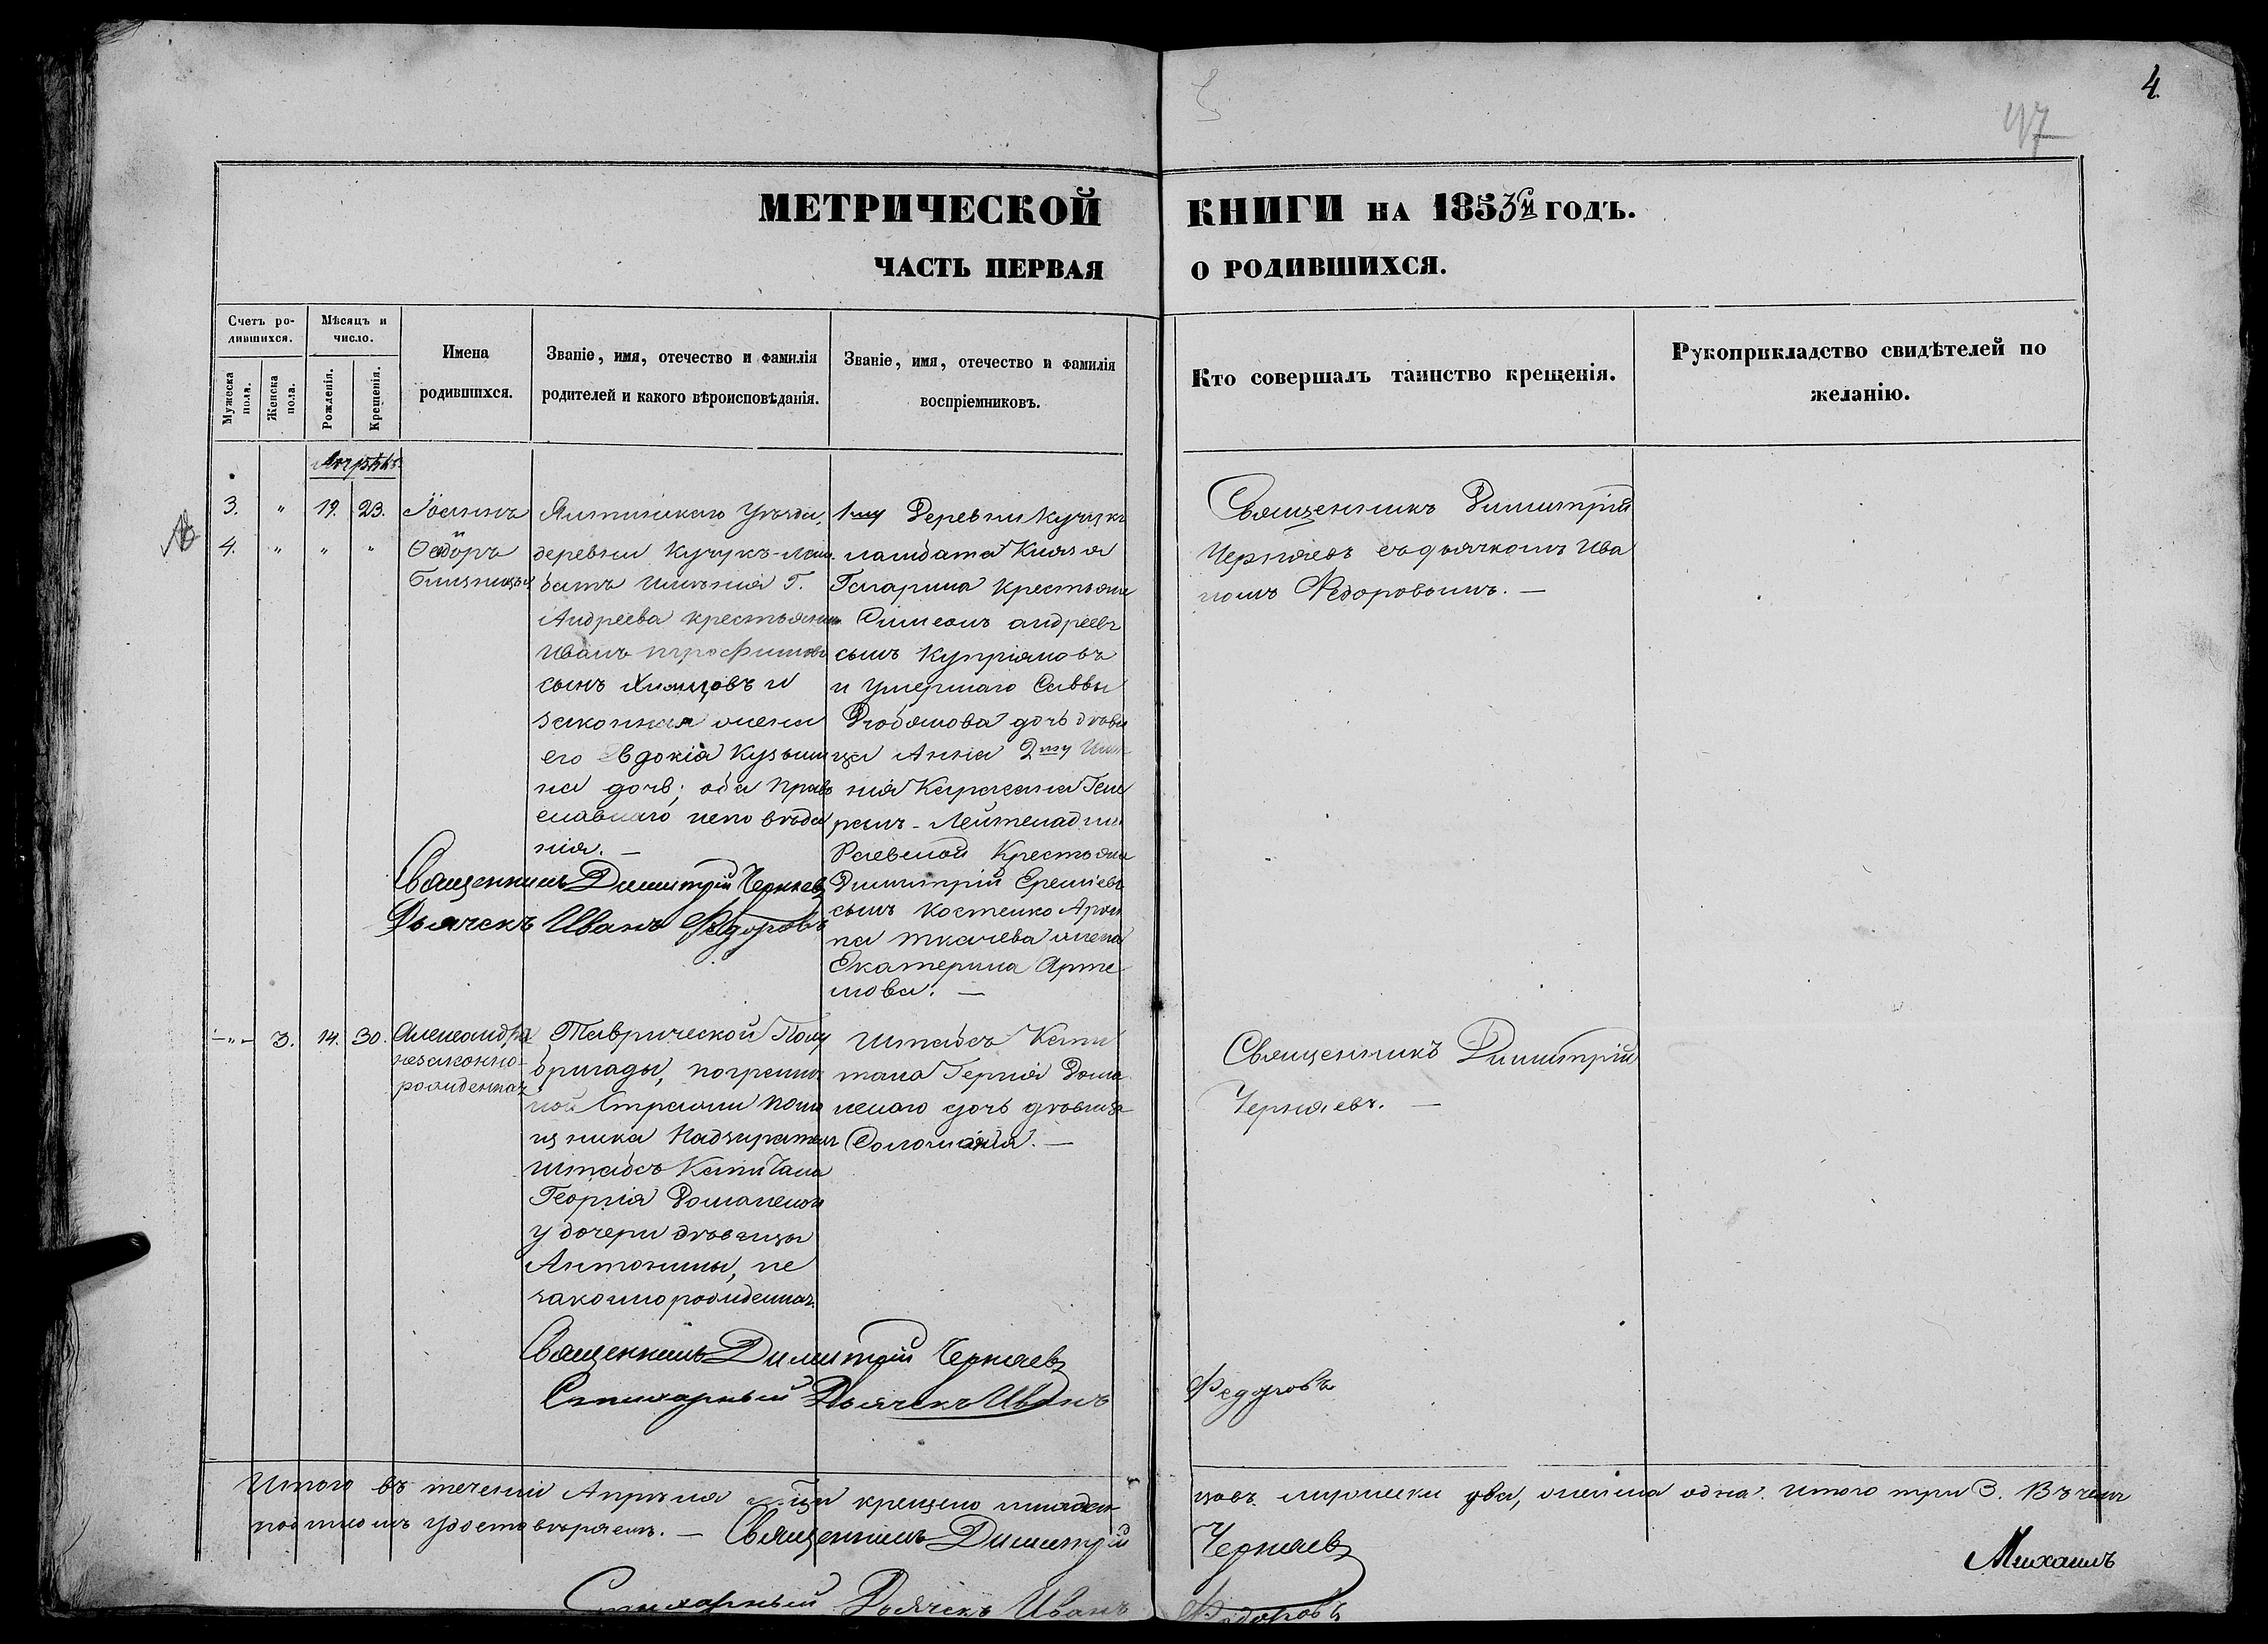 4.
97
МЕТРИЧЕСКОЙ КНИГИ НА 1853й ГОДЪ.
ЧАСТЬ ПЕРВАЯ О РОДИВШИХСЯ.
Счетъ ро-
дившихся.
Мужеска пола.
Женска пола.
Мѣсяцъ и
число.
Рожденія.
Крещенія.
Имена
родившихся.
Званіе, имя, отечество и фамилія
родителей и какого вѣроисповѣданія.
Званіе, имя, отечество и фамилія
воспріемниковъ.
Кто совершалъ таинство крещенія.
Рукоприкладство свидѣтелей по
желанію.
Апрѣль
3. " 19. 23.
4. " " "
Іоаннъ
Ѳеодоръ
близнецы
Ялтинскаго Уѣзда,
деревни Кучукъ-Лам
батъ имѣнія Г.
Андреева крестьянинъ
Иванъ Трофимовъ
сынъ Химцовъ и
законная жена
его Евдокія Кузьми
на дочь; оба право
славнаго исповѣда
нія. —
Священникъ Димитрій Черняев
Дьячекъ Иванъ Федоровъ
1му Деревни Кучукъ
ламбата Князя
Гагарина крестьяне
Симеонъ андреевъ
сынъ Купріяновъ
и умершаго Саввы
дочь дѣви
ца Анна 2му Имѣ
нія Карасана Гене
ралъ-Лейтенадши
Раевской Крестьяне
Димитрій Еремѣевъ
сынъ Костенко
на ткачева жена
Екатерина Арте
мова. —
Священникъ Димитрій
Черняевъ съ дьячкомъ Ива
номъ Федоровымъ. —
-"- 3. 14. 30.
Александра
незаконно-
рожденная
Таврической Полу
бригады, погранич
ной Стражи помо
щника Надзирателя
Штабсъ Капитана
Георгія Доманскаго
у дочери дѣвицы
Антонины, не
законнорожденная.
Штабсъ Капи
тана Георгія Дома
нскаго дочь дѣвица
Соломонія. —
Священникъ Димитрій
Черняевъ. —
Священникъ Димитрій Черняев
Стихарный Дьячекъ Иванъ Федоровъ
Итого въ теченіи Апрѣля м-ца крещено младен-
цовъ мужески два, женска одна. Итого три 3. Въ чемъ
подписомъ удостовѣряемъ. — Священникъ Димитрій Черняев
Михаилъ
Стихарный Дьячекъ Иванъ Федоровъ